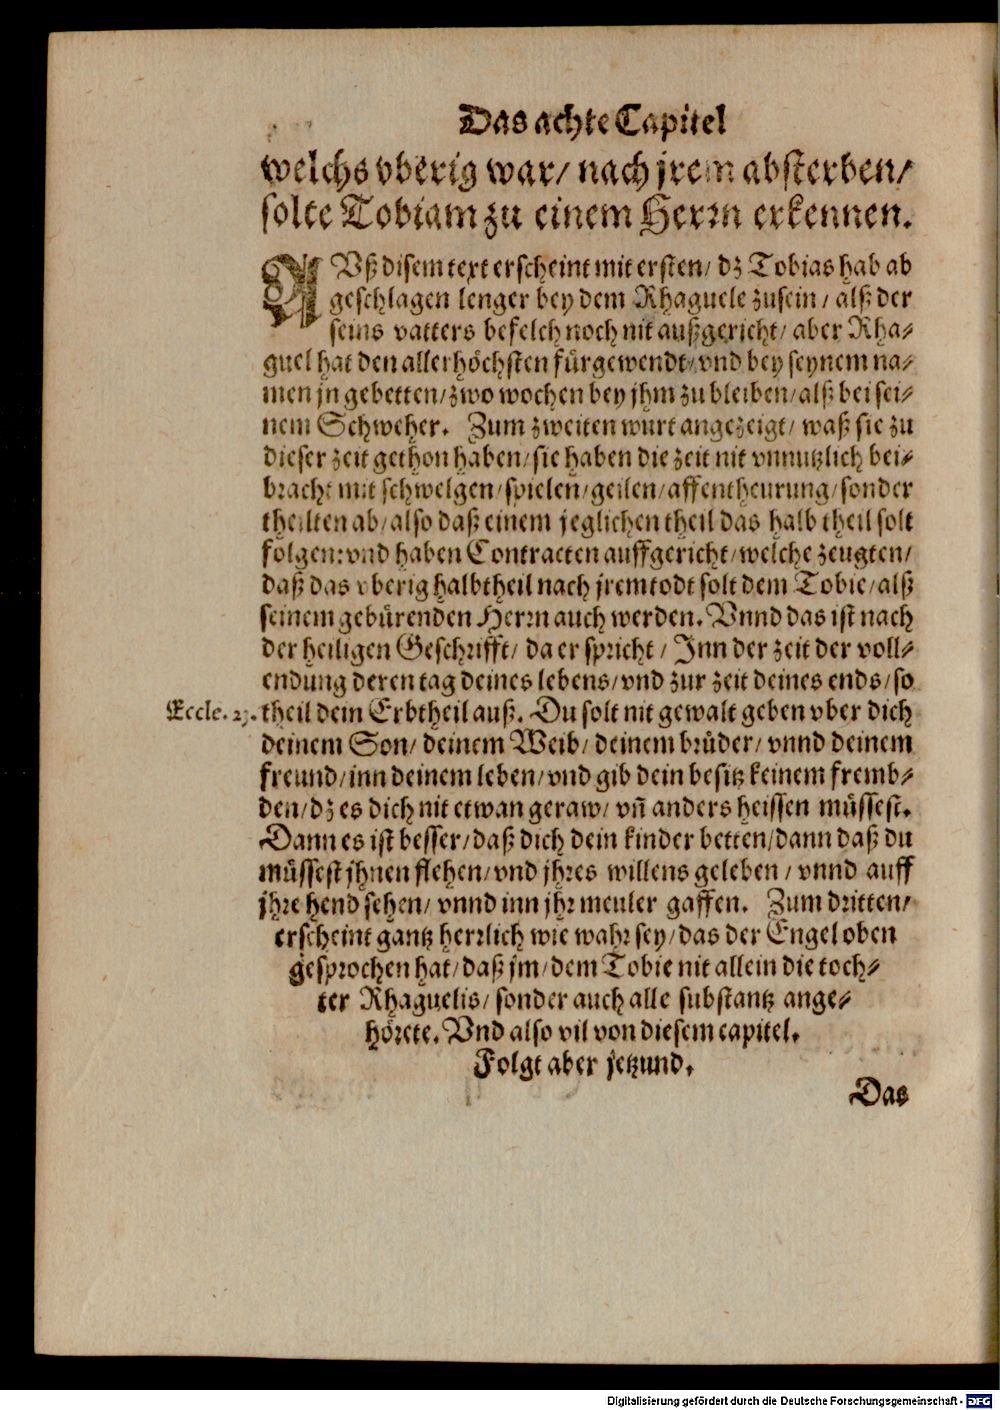 Das achte Capitel
welchs vberig war/ nach jrem absterben/
solte Tobiam zu einem Herrn erkennen.
AVß disem text erscheint mit ersten/ dz Tobias hab ab
geschlagen lenger bey dem Rhaguele zusein/ alß der
seins vatters befelch noch nit außgericht/ aber Rha-
guel hat den allerhöchsten fürgewendt/ vnd bey seynem na-
men jn gebetten/ zwo wochen bey jhm zu bleiben/ alß bei sei-
nem Schweher. Zum zweiten wurt angezeigt/ waß sie zu
dieser zeit gethon haben/ sie haben die zeit nit vnnutzlich bei-
bracht mit schwelgen/ spielen/ geilen/ affentheurung/ sonder
theilten ab/ also daß einem jeglichen theil das halb theil solt
folgen: vnd haben Contracten auffgericht/ welche zeugten/
daß das vberig halbtheil nach jrem todt solt dem Tobie/ alß
seinem gebürenden Herrn auch werden. Vnnd das ist nach
der heiligen Geschrifft/ da er spricht/ Inn der zeit der voll-
endung deren tag deines lebens/ vnd zur zeit deines ends/ so
Eccle. 23. theil dein Erbtheil auß. Du solt nit gewalt geben vber dich
deinem Son/ deinem Weib/ deinem brůder/ vnnd deinem
freund/ inn deinem leben/ vnd gib dein besitz keinem fremb-
den/ dz es dich nit etwan geraw/ vñ anders heissen müssest.
Dann es ist besser/ daß dich dein kinder betten/ dann daß du
müssest jhnen flehen/ vnd jhres willens geleben/ vnnd auff
jhre hend sehen/ vnnd inn jhr meuler gaffen. Zum dritten/
erscheint gantz herrlich wie wahr sey/ das der Engel oben
gesprochen hat/ daß jm/ dem Tobie nit allein die toch-
ter Rhaguelis/ sonder auch alle substantz ange-
hörete. Vnd also vil von diesem capitel.
Folgt aber jetzund.
Das
Digitalisierung gefördert durch die Deutsche Forschungsgemeinschaft - DFG